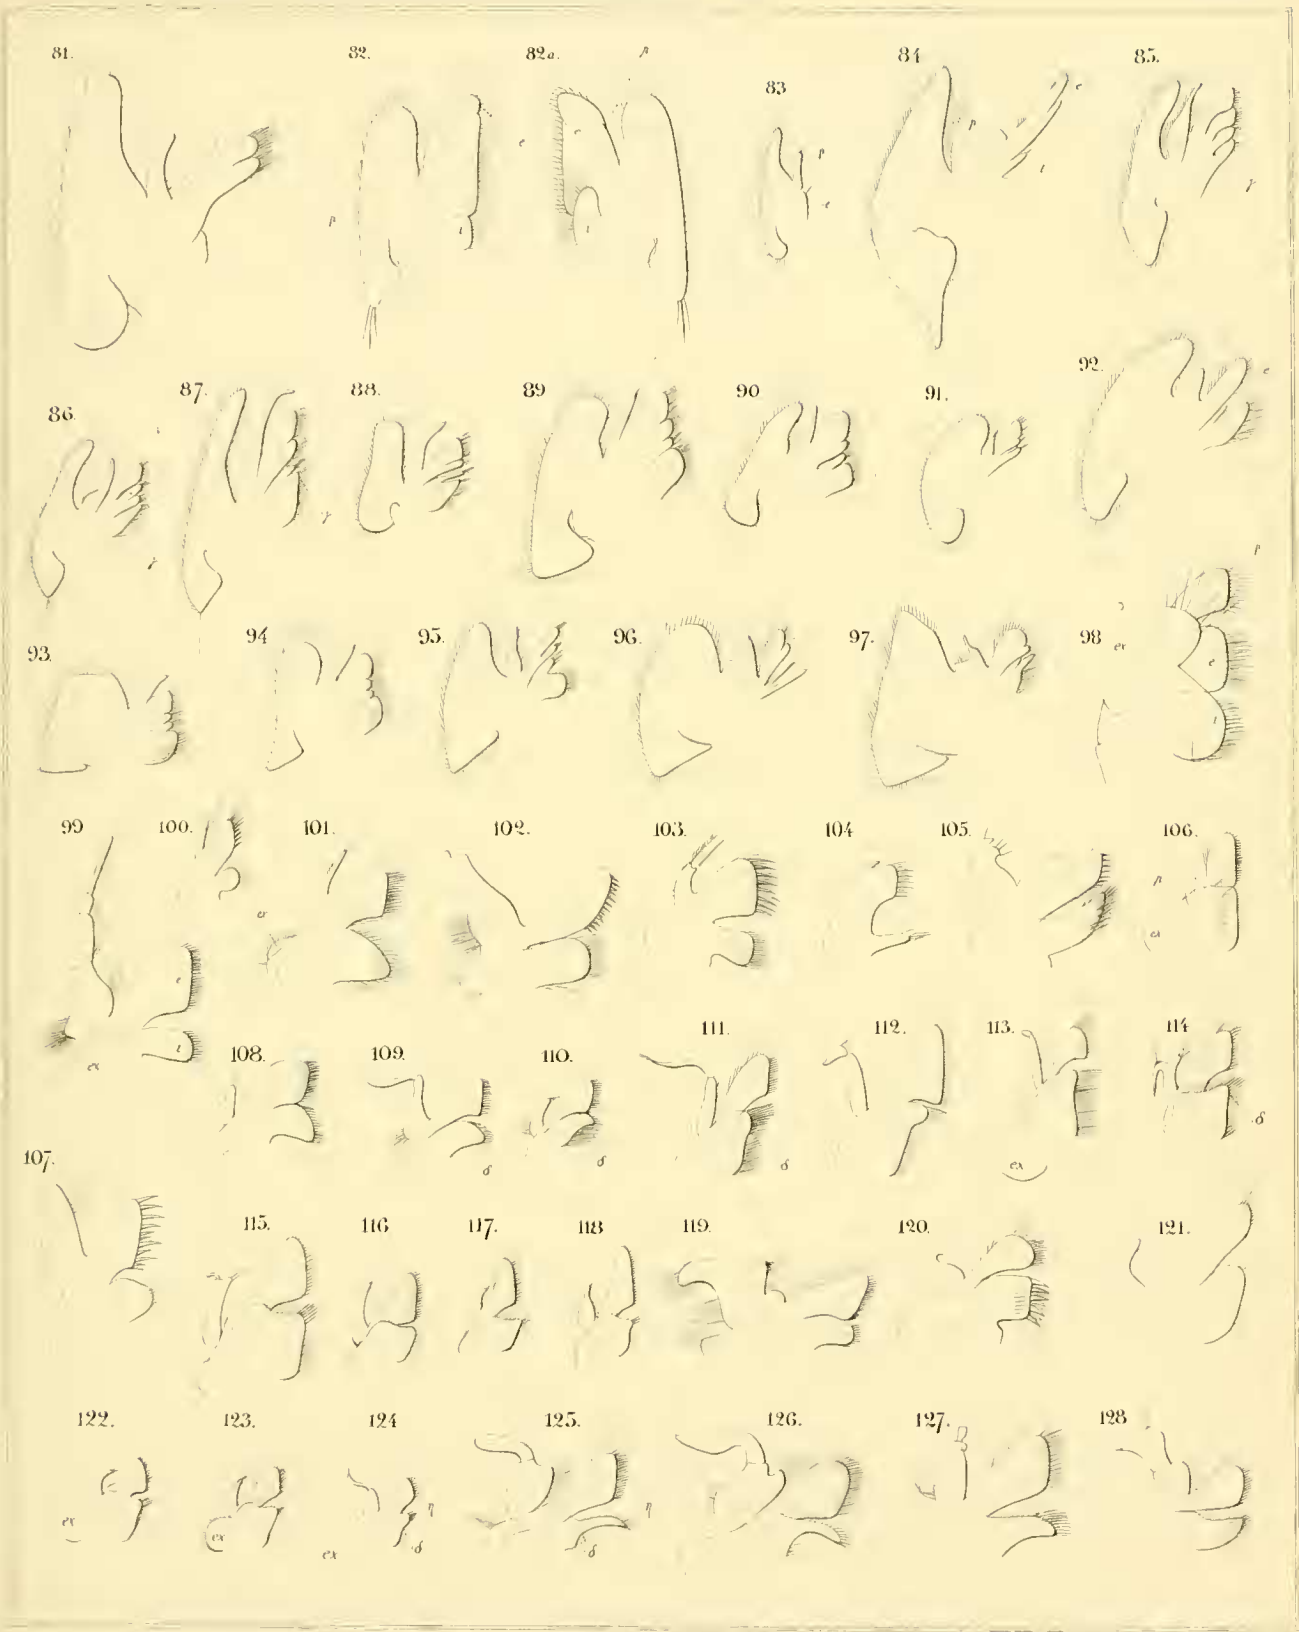 81. 82. 82a. β 83 84 85.
86. 87. 88. 89 90 91. 92.
93. 94 95. 96. 97. 98
99 100. 101. 102. 103. 104 105. 106.
107. 108. 109. 110. 111. 112. 113. 114
115. 116 117. 118 119. 120. 121.
122. 123. 124 125. 126. 127. 128